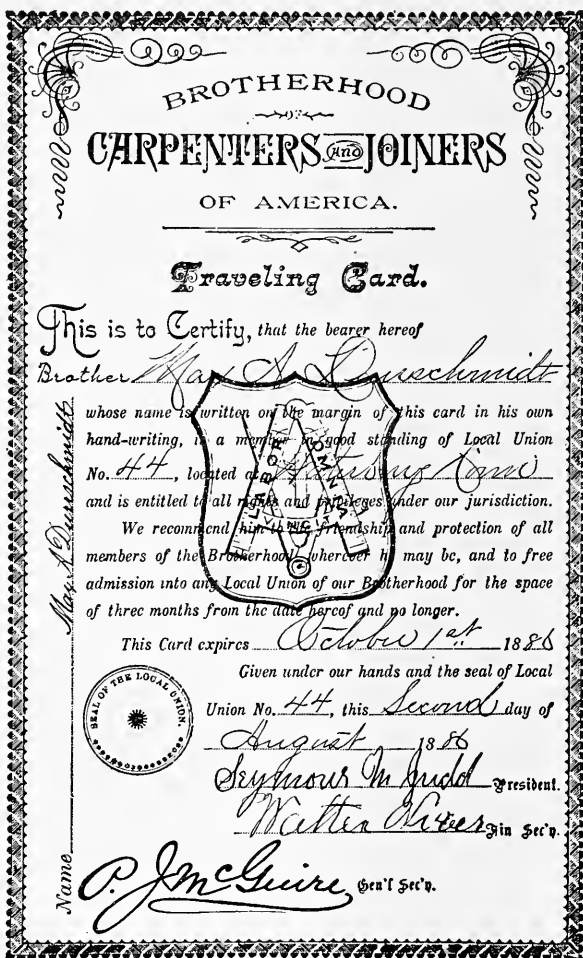 BROTHERHOOD
OF
CARPENTERS AND JOINERS
OF AMERICA.
Traveling Card.
This is to Certify, that the bearer hereof
Brother Max A Durrschmidt
whose name is written on the margin of this card in his own
hand-writing, is a member in good standing of Local Union
No. 44, located at Conn
and is entitled to all rights and privileges under our jurisdiction.
We recommend him to the friendship and protection of all
members of the Brotherhood wherever he may be, and to free
admission into any Local Union of our Brotherhood for the space
of three months from the date hereof and no longer.
This Card expires October 1st 1886
Given under our hands and the seal of Local
Union No. 44, this Second day of
August 1886
Seymour M Judd President.
Walter Fin Sec'y.
P. J. McGuire Gen'l Sec'y.
Name Max A Durrschmidt
SEAL OF THE LOCAL UNION.
LABOR OMNIA VINCIT